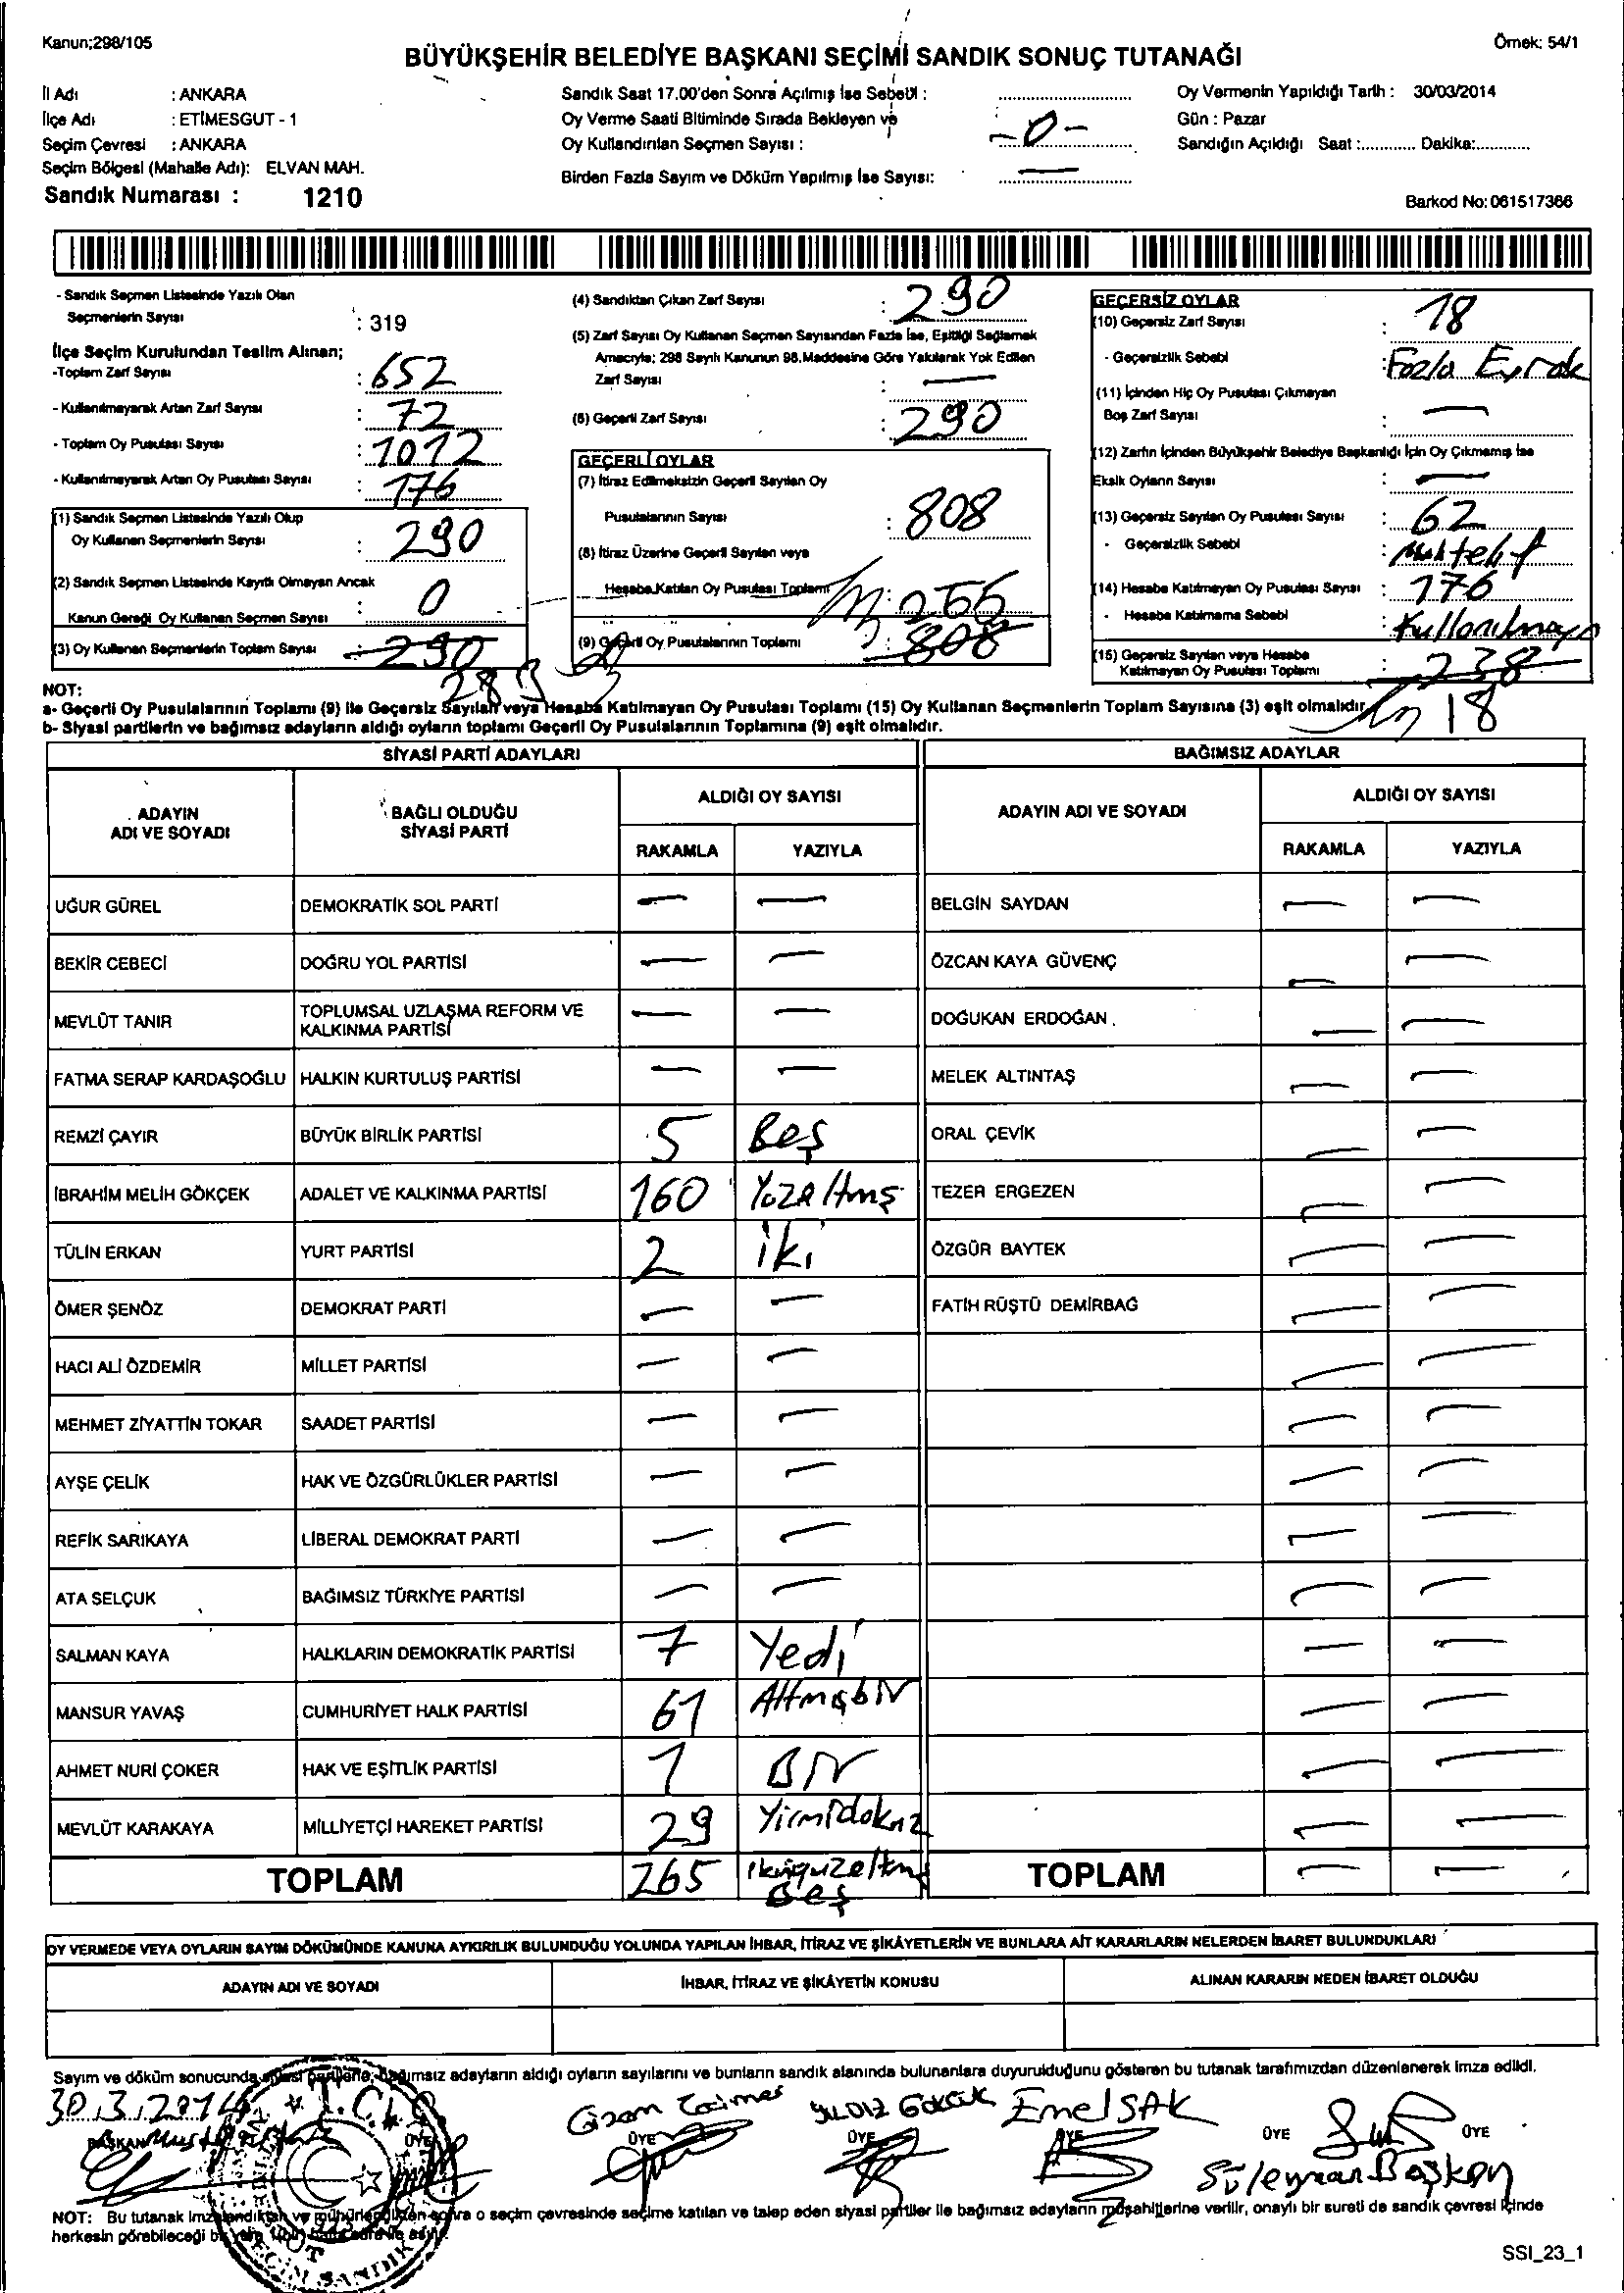 Kanun;298/105
Örnek: 54/1
BÜYÜKŞEHİR BELEDİYE BAŞKANI SEÇİMİ SANDIK SONUÇ TUTANAĞI
İl Adı : ANKARA
İlçe Adı : ETİMESGUT - 1
Seçim Çevresi : ANKARA
Seçim Bölgesi (Mahalle Adı): ELVAN MAH.
Sandık Numarası : 1210
Sandık Saat 17.00'den Sonra Açılmış İse Sebebi :
Oy Verme Saati Bitiminde Sırada Bekleyen ve
Oy Kullandırılan Seçmen Sayısı : -0-
Birden Fazla Sayım ve Döküm Yapılmış İse Sayısı: —
Oy Vermenin Yapıldığı Tarih : 30/03/2014
Gün : Pazar
Sandığın Açıldığı Saat :............ Dakika:............
Barkod No: 061517366
- Sandık Seçmen Listesinde Yazılı Olan
Seçmenlerin Sayısı : 319
İlçe Seçim Kurulundan Teslim Alınan;
-Toplam Zarf Sayısı : 652
- Kullanılmayarak Artan Zarf Sayısı : 72
- Toplam Oy Pusulası Sayısı : 1012
- Kullanılmayarak Artan Oy Pusulası Sayısı : 176
(1) Sandık Seçmen Listesinde Yazılı Olup
Oy Kullanan Seçmenlerin Sayısı : 290
(2) Sandık Seçmen Listesinde Kayıtlı Olmayan Ancak
Kanun Gereği Oy Kullanan Seçmen Sayısı : 0
(3) Oy Kullanan Seçmenlerin Toplam Sayısı : 290
283
(4) Sandıktan Çıkan Zarf Sayısı : 290
(5) Zarf Sayısı Oy Kullanan Seçmen Sayısından Fazla İse, Eşitliği Sağlamak
Amacıyla; 298 Sayılı Kanunun 98.Maddesine Göre Yakılarak Yok Edilen
Zarf Sayısı : —
(6) Geçerli Zarf Sayısı : 290
GEÇERLİ OYLAR
(7) İtiraz Edilmeksizin Geçerli Sayılan Oy
Pusulalarının Sayısı : 808
(8) İtiraz Üzerine Geçerli Sayılan veya
Hesaba Katılan Oy Pusulası Toplamı :
(9) Geçerli Oy Pusulalarının Toplamı : 808
GEÇERSİZ OYLAR
(10) Geçersiz Zarf Sayısı : 18
- Geçersizlik Sebebi : Fazla Evrak
(11) İçinden Hiç Oy Pusulası Çıkmayan
Boş Zarf Sayısı : —
(12) Zarfın İçinden Büyükşehir Belediye Başkanlığı İçin Oy Çıkmamış İse
Eksik Oyların Sayısı : —
(13) Geçersiz Sayılan Oy Pusulası Sayısı : 62
- Geçersizlik Sebebi : Muhtelif
(14) Hesaba Katılmayan Oy Pusulası Sayısı : 176
- Hesaba Katılmama Sebebi : Kullanılmayn
(15) Geçersiz Sayılan veya Hesaba
Katılmayan Oy Pusulası Toplamı : 238
18
NOT:
a- Geçerli Oy Pusulalarının Toplamı (9) ile Geçersiz Sayılan veya Hesaba Katılmayan Oy Pusulası Toplamı (15) Oy Kullanan Seçmenlerin Toplam Sayısına (3) eşit olmalıdır.
b- Siyasi partilerin ve bağımsız adayların aldığı oyların toplamı Geçerli Oy Pusulalarının Toplamına (9) eşit olmalıdır.
SİYASİ PARTİ ADAYLARI
BAĞIMSIZ ADAYLAR
ADAYIN ADI VE SOYADI
BAĞLI OLDUĞU SİYASİ PARTİ
ALDIĞI OY SAYISI
RAKAMLA YAZIYLA
ADAYIN ADI VE SOYADI
ALDIĞI OY SAYISI
RAKAMLA YAZIYLA
UĞUR GÜREL DEMOKRATİK SOL PARTİ — — BELGİN SAYDAN — —
BEKİR CEBECİ DOĞRU YOL PARTİSİ — — ÖZCAN KAYA GÜVENÇ — —
MEVLÜT TANIR TOPLUMSAL UZLAŞMA REFORM VE KALKINMA PARTİSİ — — DOĞUKAN ERDOĞAN — —
FATMA SERAP KARDAŞOĞLU HALKIN KURTULUŞ PARTİSİ — — MELEK ALTINTAŞ — —
REMZİ ÇAYIR BÜYÜK BİRLİK PARTİSİ 5 Beş ORAL ÇEVİK — —
İBRAHİM MELİH GÖKÇEK ADALET VE KALKINMA PARTİSİ 160 Yüzaltmış TEZER ERGEZEN — —
TÜLİN ERKAN YURT PARTİSİ 2 iki ÖZGÜR BAYTEK — —
ÖMER ŞENÖZ DEMOKRAT PARTİ — — FATİH RÜŞTÜ DEMİRBAĞ — —
HACI ALİ ÖZDEMİR MİLLET PARTİSİ — — — —
MEHMET ZİYATTİN TOKAR SAADET PARTİSİ — — — —
AYŞE ÇELİK HAK VE ÖZGÜRLÜKLER PARTİSİ — — — —
REFİK SARIKAYA LİBERAL DEMOKRAT PARTİ — — — —
ATA SELÇUK BAĞIMSIZ TÜRKİYE PARTİSİ — — — —
SALMAN KAYA HALKLARIN DEMOKRATİK PARTİSİ 7 Yedi — —
MANSUR YAVAŞ CUMHURİYET HALK PARTİSİ 61 Altmışbir — —
AHMET NURİ ÇOKER HAK VE EŞİTLİK PARTİSİ 1 Bir — —
MEVLÜT KARAKAYA MİLLİYETÇİ HAREKET PARTİSİ 29 Yirmidokuz — —
TOPLAM 265 ikiyüzaltmış Beş TOPLAM — —
OY VERMEDE VEYA OYLARIN SAYIM DÖKÜMÜNDE KANUNA AYKIRILIK BULUNDUĞU YOLUNDA YAPILAN İHBAR, İTİRAZ VE ŞİKÂYETLERİN VE BUNLARA AİT KARARLARIN NELERDEN İBARET BULUNDUKLARI
ADAYIN ADI VE SOYADI İHBAR, İTİRAZ VE ŞİKÂYETİN KONUSU ALINAN KARARIN NEDEN İBARET OLDUĞU
Sayım ve döküm sonucunda siyasi partilerle, bağımsız adayların aldığı oyların sayılarını ve bunların sandık alanında bulunanlara duyurulduğunu gösteren bu tutanak tarafımızdan düzenlenerek imza edildi.
30.3.2014
T.C.
Gizem YILDIZ Emel SAK
BAŞKAN ÜYE ÜYE ÜYE ÜYE ÜYE ÜYE
Süleyman Başkan
NOT: Bu tutanak imzalandıktan ve mühürlendikten sonra o seçim çevresinde seçime katılan ve talep eden siyasi partiler ile bağımsız adayların müşahitlerine verilir, onaylı bir sureti de sandık çevresi içinde
herkesin görebileceği bir yere
SSI_23_1